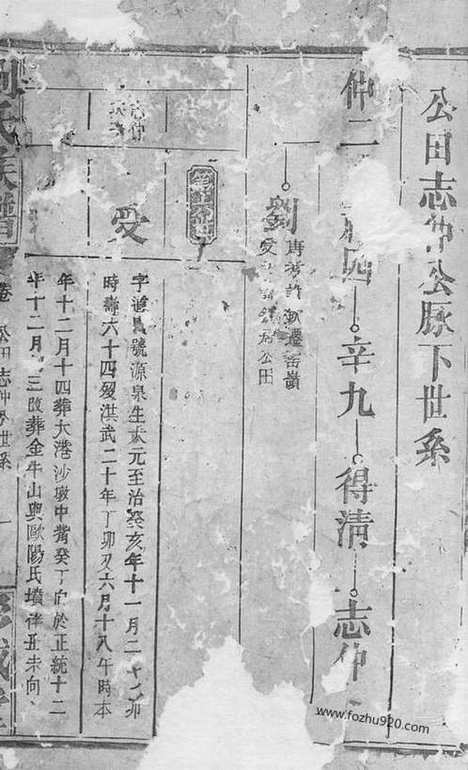 公田志仲公脉下世系
仲二 四 辛九 得清 志仲
劉
唐 許 遷 嶺
愛 公田
志仲
長子
受
字 號源泉生大元至治癸亥年十一月二十 卯
時壽六十四歿洪武二十年丁卯又六月十八午時本
年十二月十四葬大港沙墩中嘴癸丁向於正統十二
年十二月 三改葬金牛山與歐陽氏墳伴丑未向
劉氏族譜
卷 公田志仲房世系 一
彭城堂
www.fozhu920.com